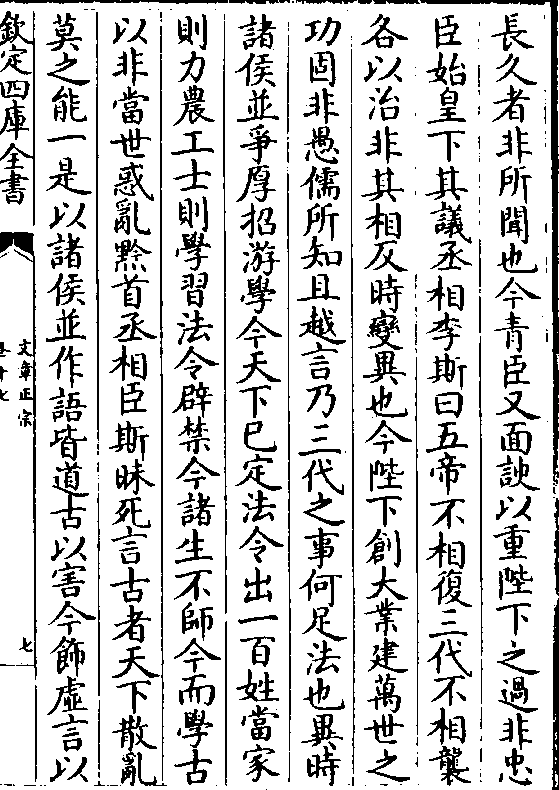 長久者非所聞也今青臣又面諛以重陛下之過非忠
臣始皇下其議丞相李斯曰五帝不相復三代不相襲
各以治非其相反時變異也今陛下創大業建萬世之
功固非愚儒所知且越言乃三代之事何足法也異時
諸侯並爭厚招游學今天下已定法令出一百姓當家
則力農工士則學習法令辟禁今諸生不師今而學古
以非當世惑亂黔首丞相臣斯昧死言古者天下散亂
莫之能一是以諸侯並作語皆道古以害今飾虛言以
欽定四庫全書
文章正宗
七